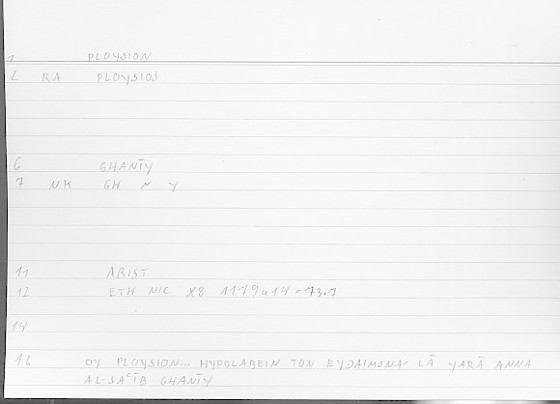 1 PLOYSION
2 RA PLOYSIOS
6 GHANĪY
7 NK GH N Y
11 ARIST
12 ETH NIC X8 1179a14 = 73.1
14
16 OY PLOYSION... HYPOLABEIN TON EYDAIMONA LĀ YARĀ ANNA
AL-SAʿĪB GHANĪY